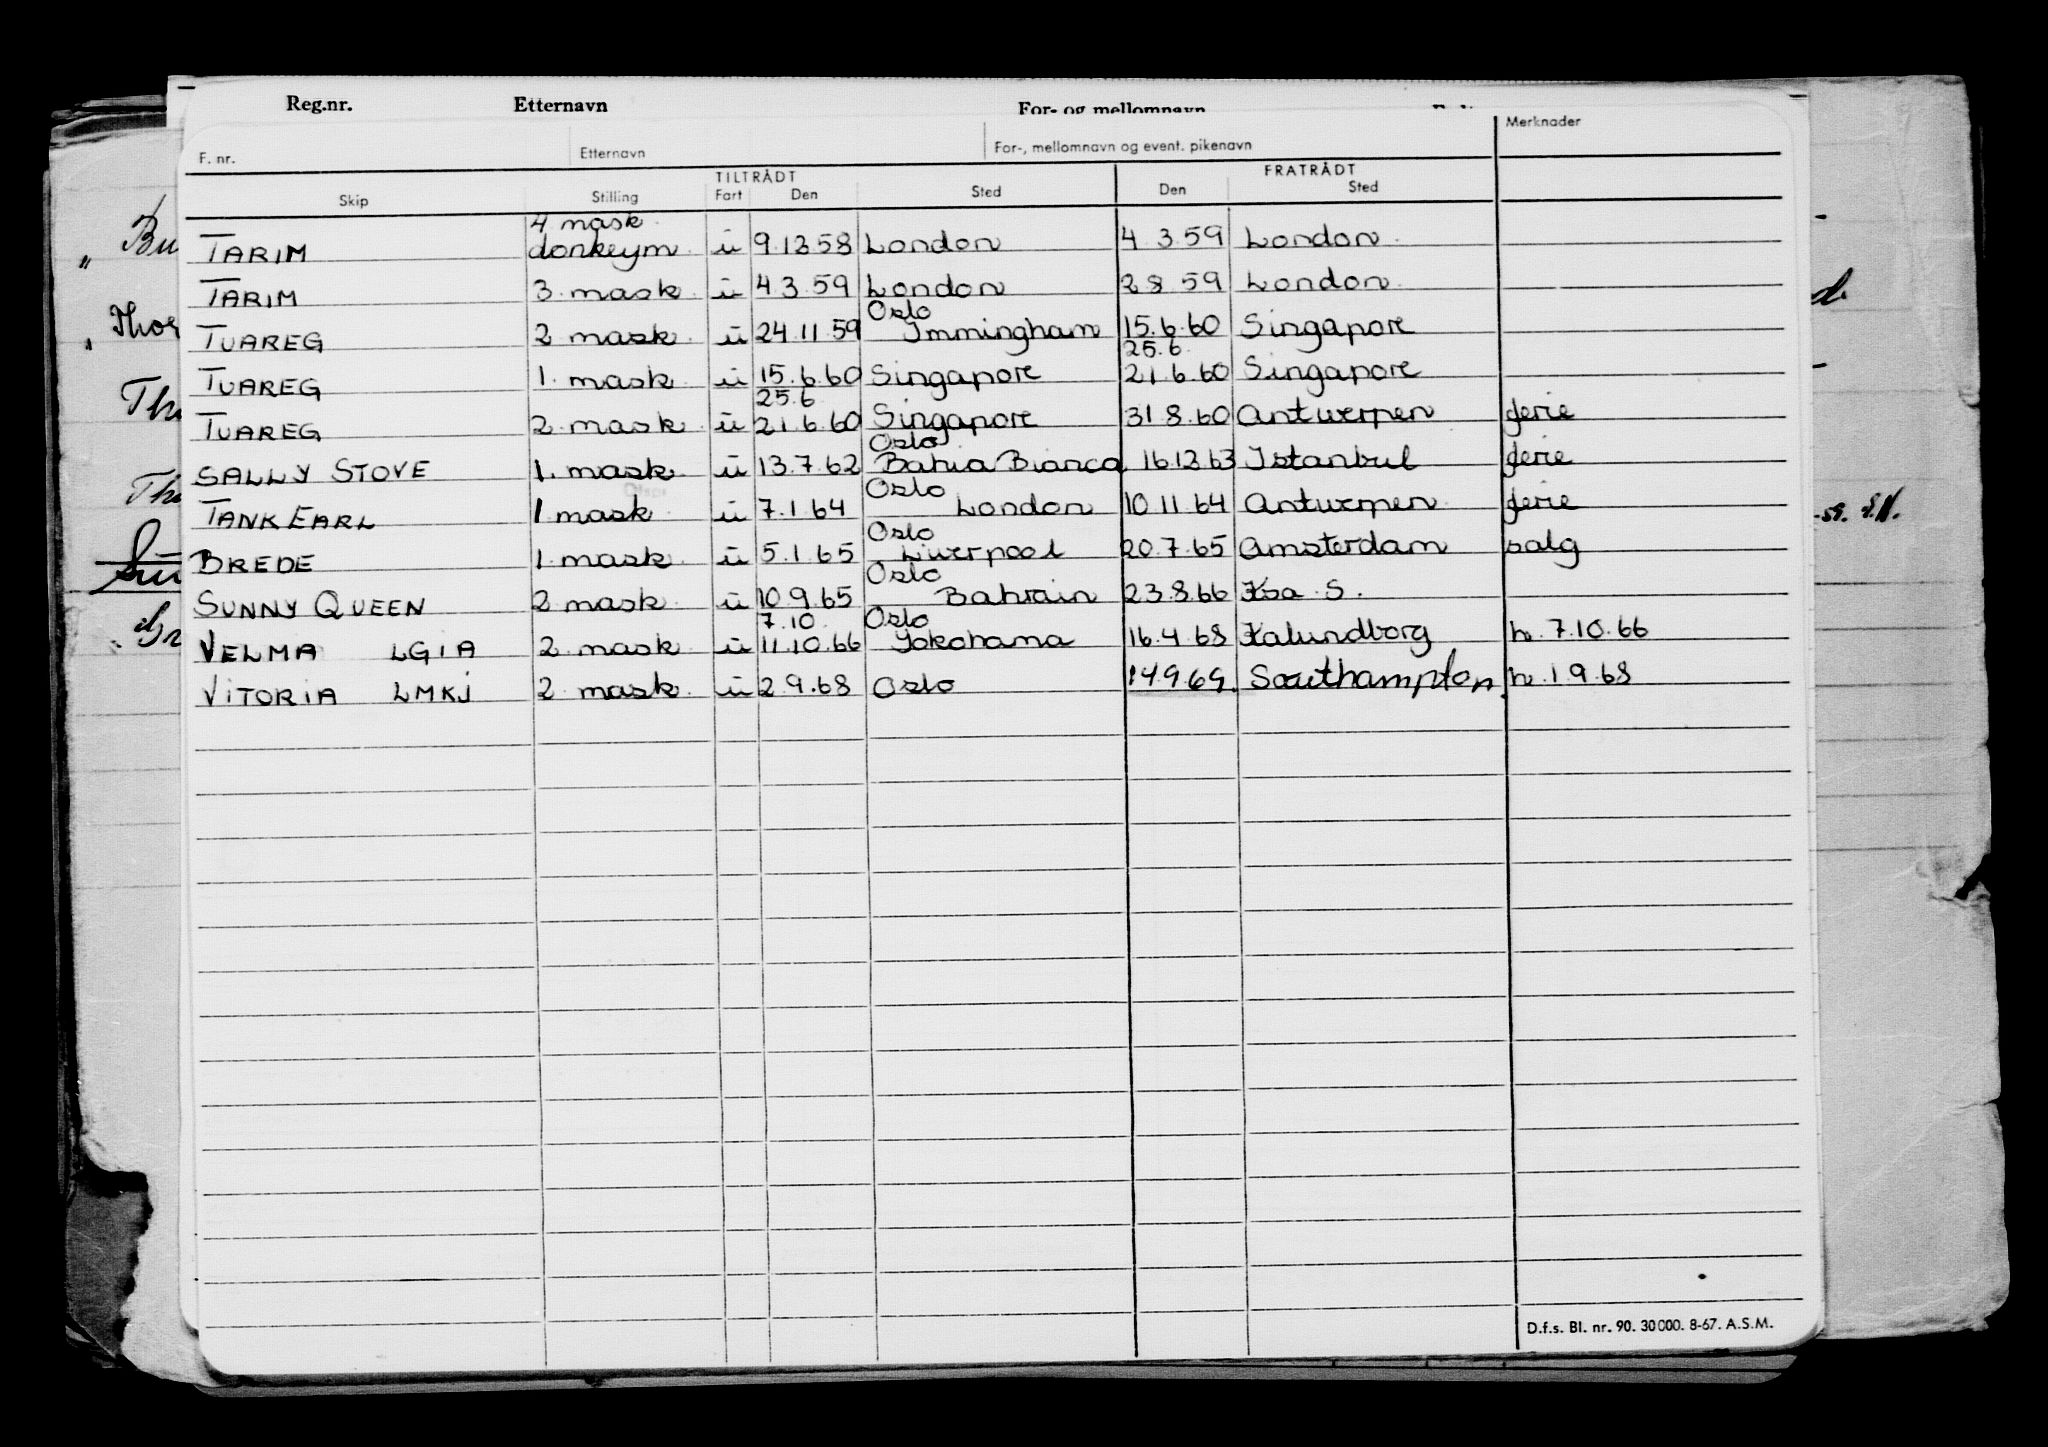 Reg.nr. Etternavn For- og mellomnavn
F. nr. Etternavn For-, mellomnavn og event. pikenavn Merknader
TILTRÅDT FRATRÅDT
Skip Stilling Fart Den Sted Den Sted
4 mask
TARIM donkeym ü 9.12.58 London 4.3.59 London
TARIM 3. mask ü 4.3.59 London 2 8 59 London
Oslo
TUAREG 2 mask ü 24.11.59 Immingham 15.6.60 Singapore
25.6
TUAREG 1. mask ü 15.6.60 Singapore 21.6.60 Singapore
25.6
TUAREG 2. mask ü 21.6.60 Singapore 31 8.60 Antwerpen ferie
Oslo
SALLY STOVE 1. mask ü 13.7.62 Bahia Bianca 16.12.63 Istanbul ferie
Oslo
TANK EARL 1 mask ü 7.1.64 London 10.11.64 Antwerpen ferie
Oslo
BREDE 1. mask ü 5.1.65 Liverpool 20.7.65 Amsterdam salg
Oslo
SUNNY QUEEN 2 mask ü 10.9.65 Bahrain 23.8.66 Kra. S.
7.10 Oslo
VELMA LGIA 2 mask ü 11.10.66 Yokohama 16.4.68 Kalundborg h. 7.10.66
VITORIA LMKJ 2 mask ü 2.9.68 Oslo 14.9.69. Southampton. h. 1 9.68
D.f.s. Bl. nr. 90. 30000. 8-67. A.S.M.